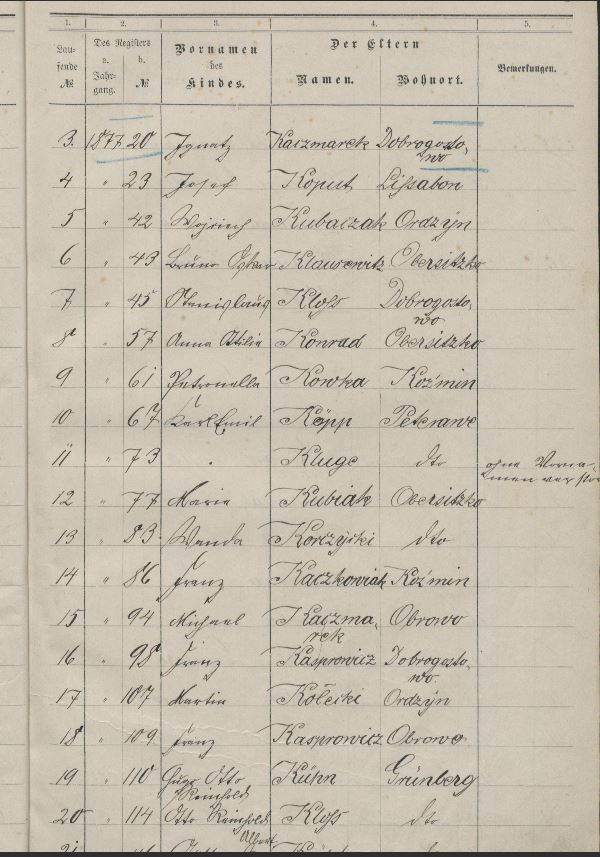 1. 2. 3. 4. 5.
Lau-
fende
№
Des Registers
a.
Jahr-
gang.
b.
№
Vornamen
des
Kindes.
Der Eltern
Namen. Wohnort.
Bemerkungen.
3. 1877 20 Ignatz Kaczmarek Dobrogosto-
wo
4 " 23 Josef Koput Lissabon
5 " 42 Wojciech Kubaczak Ordzyn
6 " 43 Bruno Oskar Klawewitz Obersitzko
7 " 45 Stanislaus Kloss Dobrogosto-
wo
8 " 57 Anna Ottilie Konrad Obersitzko
9 " 61 Petronella Kowka Koźmin
10 " 67 Karl Emil Köpp Peterawe
11 " 73 . Kluge dto ohne Vorna-
men verstor
12 " 77 Marie Kubiak Obersitzko
13 " 83. Wanda Korczyski dto
14 " 86 Franz Kaczkowiak Koźmin
15 " 94 Michael Kaczma- Obrowo
rek
16 " 98 Franz Kasprowicz Dobrogosto-
wo.
17 " 107 Martin Kolecki Ordzyn
18 " 109 Franz Kasprowicz Obrowo
19 " 110 Hugo Otto Kühn Grünberg
Reinhold
20 " 114 Otto Reinhold Kloss dto
Albert
21